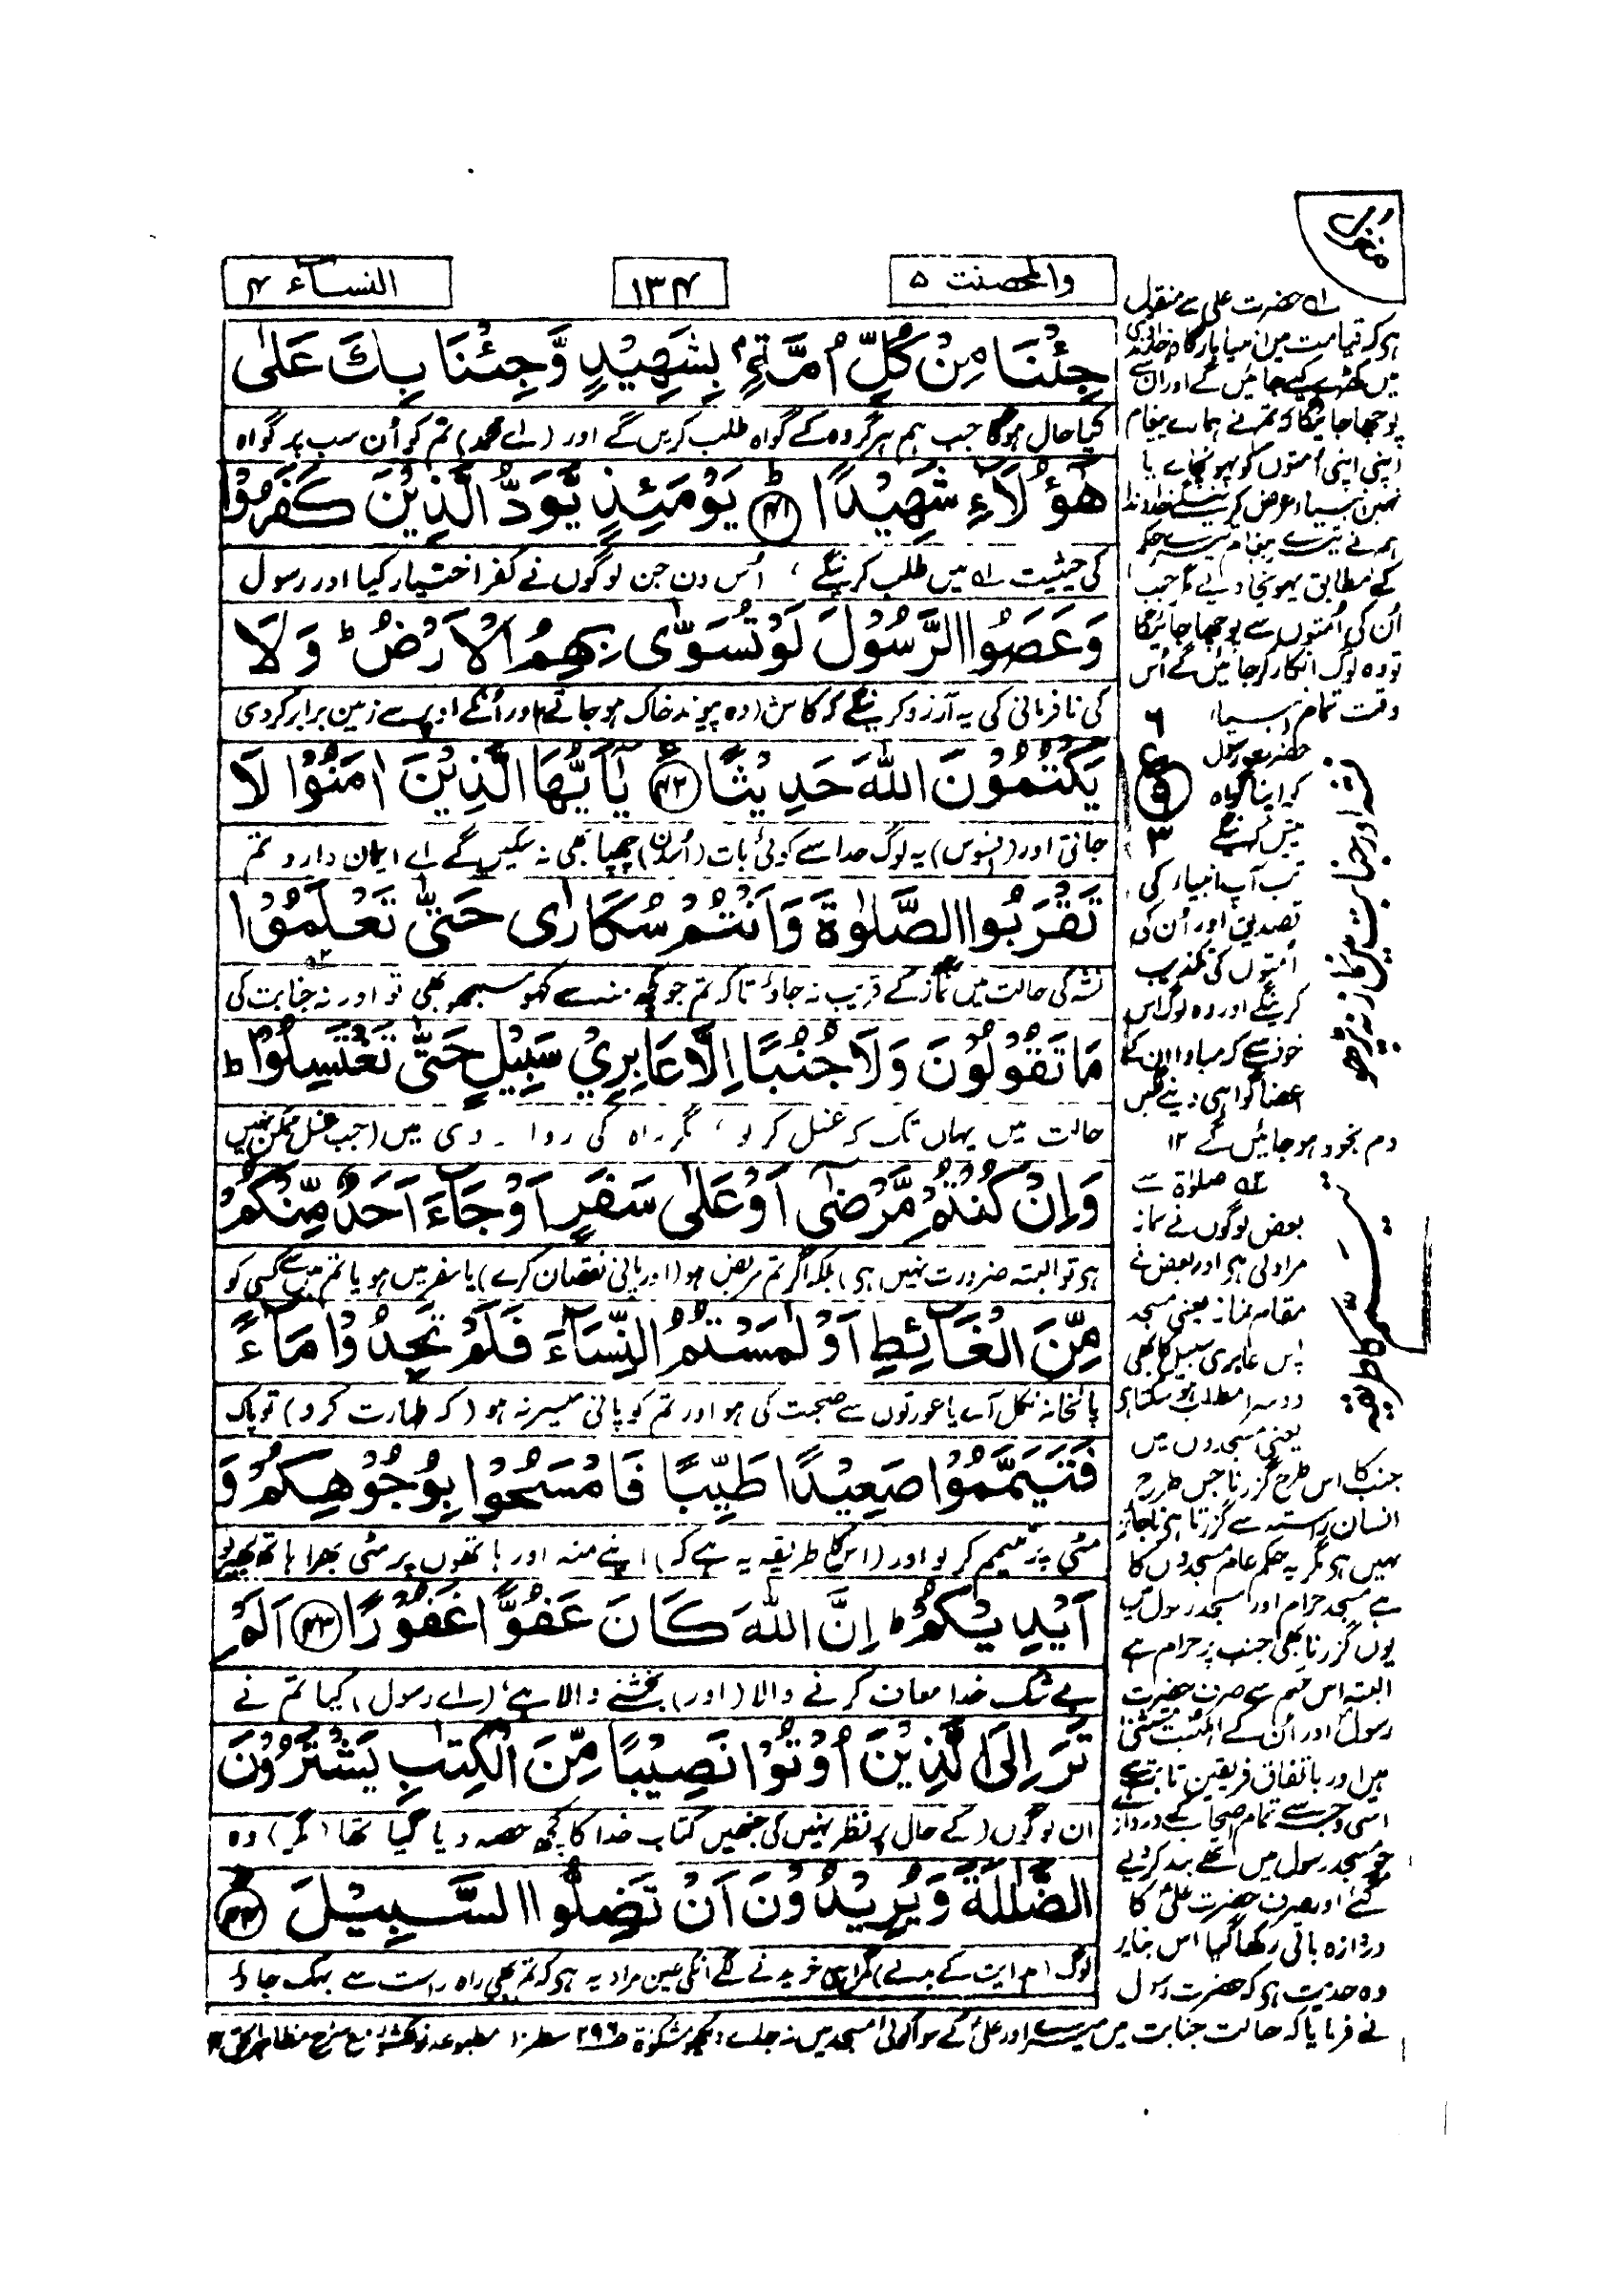 والمحصنت ۵
۱۳۴
النساء ۴
جِئْنَا مِنْ كُلِّ اُمَّةٍۭ بِشَهِيْدٍ وَّجِئْنَا بِكَ عَلٰى
کیا حال ہوگا جب ہم ہر گروہ کے گواہ طلب کریں گے اور (اے محمد) تم کو اُن سب پر گواہ
هٰٓؤُلَآءِ شَهِيْدًا ؕ ۴۱ يَوْمَئِذٍ يَّوَدُّ الَّذِيْنَ كَفَرُوْا
کی حیثیت ۱؎ میں طلب کرینگے، اُس دن جن لوگوں نے کفر اختیار کیا اور رسول
وَعَصَوُا الرَّسُوْلَ لَوْ تُسَوّٰى بِهِمُ الْاَرْضُ ؕ وَلَا
کی نافرمانی کی یہ آرزو کرینگے کہ کاش (وہ پیوند خاک ہو جاتے) اور اُنکے اوپر سے زمین برابر کردی
يَكْتُمُوْنَ اللّٰهَ حَدِيْثًا ۴۲ يٰٓاَيُّهَا الَّذِيْنَ اٰمَنُوْا لَا
جاتی اور (افسوس) یہ لوگ خدا سے کوئی بات (اُسدن) چھپا بھی نہ سکیں گے اے ایمان دارو تم
تَقْرَبُوا الصَّلٰوةَ وَاَنْتُمْ سُكَارٰى حَتّٰى تَعْلَمُوْا
نشہ کی حالت میں نماز ۲؎ کے قریب نہ جاؤ تاکہ تم جو کچھ منہ سے کہو سمجھو بھی تو اور نہ جنابت کی
مَا تَقُوْلُوْنَ وَلَا جُنُبًا اِلَّا عَابِرِيْ سَبِيْلٍ حَتّٰى تَغْتَسِلُوْا ؕ
حالت میں یہاں تک کہ غسل کر لو، مگر راہ کی روا روی میں (جب غسل ممکن نہیں
وَاِنْ كُنْتُمْ مَّرْضٰٓى اَوْ عَلٰى سَفَرٍ اَوْ جَآءَ اَحَدٌ مِّنْكُمْ
ہی تو البتہ ضرورت نہیں ہی) بلکہ اگر تم مریض ہو (اور پانی نقصان کرے) یا سفر میں ہو یا تم میں سے کسی کو
مِّنَ الْغَآئِطِ اَوْ لٰمَسْتُمُ النِّسَآءَ فَلَمْ تَجِدُوْا مَآءً
پائخانہ نکل آئے یا عورتوں سے صحبت کی ہو اور تم کو پانی میسر نہ ہو (کہ طہارت کرو) تو پاک
فَتَيَمَّمُوْا صَعِيْدًا طَيِّبًا فَامْسَحُوْا بِوُجُوْهِكُمْ وَ
مٹی پر تیمم کر لو اور (اس کا طریقہ یہ ہے کہ) اپنے منہ اور ہاتھوں پر مٹی بھرا ہاتھ پھیر لو
اَيْدِيْكُمْ ؕ اِنَّ اللّٰهَ كَانَ عَفُوًّا غَفُوْرًا ۴۳ اَلَمْ
بے شک خدا معاف کرنے والا (اور) بخشنے والا ہے، (اے رسول) کیا تم نے
تَرَ اِلَى الَّذِيْنَ اُوْتُوْا نَصِيْبًا مِّنَ الْكِتٰبِ يَشْتَرُوْنَ
ان لوگوں (کے حال) پر نظر نہیں کی جنھیں کتاب خدا کا کچھ حصہ دیا گیا تھا (مگر) وہ
الضَّلٰلَةَ وَيُرِيْدُوْنَ اَنْ تَضِلُّوا السَّبِيْلَ ۴۴
لوگ (ہدایت کے بدلے) گمراہی خریدنے لگے انکی عین مراد یہ ہی کہ تم بھی راہ راست سے بہک جاؤ
۱؎ حضرت علی سے منقول
ہی کہ قیامت میں انبیا بارگاہ خداوندی
میں کھڑے کیے جائیں گے اور ان سے
پوچھا جائیگا کہ تم نے ہمارے پیغام
اپنی اپنی اُمتوں کو پہونچائے یا
نہیں انبیاء عرض کرینگے خداوندا
ہم نے تیرے پیغام تیرے حکم
کے مطابق پہونچا دیے تھے جب
اُن کی اُمتوں سے پوچھا جائیگا
تو وہ لوگ انکار کر جائیں گے اُس
وقت تمام انبیاء
حضرت رسول
کو اپنا گواہ
پیش کرینگے
تب آپ انبیار کی
تصدیق اور اُن کی
اُمتوں کی تکذیب
کرینگے اور وہ لوگ اس
خوف سے کہ مبادا ان کے
اعضا گواہی دینے لگیں
دم بخود ہو جائیں گے ۱۲
۶
ع
۹
۳
نشہ اور جنابت میں نماز نہ پڑھو
۲؎ صلوٰۃ سے
بعض لوگوں نے نماز
مراد لی ہی اور بعض نے
مقام نماز یعنی مسجد
پس عابری سبیل کا بھی
دوسرا مطلب ہو سکتا ہی
یعنی مسجدوں میں
جنب کا اس طرح گزرنا جس طرح
انسان راستہ سے گزرتا ہی ناجائز
نہیں ہی مگر یہ حکم عام مسجدوں کا
ہے مسجد حرام اور مسجد رسول میں
یوں گزرنا بھی جنب پر حرام ہے
البتہ اس حکم سے صرف حضرت
رسول اور اُن کے اہلبیت مستثنیٰ
ہیں اور باتفاق فریقین ثابت ہے
اسی وجہ سے تمام صحابہ کے دروازے
جو مسجد رسول میں تھے بند کر دیے
گئے اور صرف حضرت علی کا
دروازہ باقی رکھا گیا اس بنا پر
وہ حدیث ہی کہ حضرت رسول
نے فرمایا کہ حالت جنابت میں میرے اور علی کے سوا کوئی مسجد میں نہ جائے دیکھو مشکوٰۃ ص۲۹۶ سطر ۱۰ مطبوعہ نولکشور مع شرح مظاہر الحق ۱۲
تیمم کا طریقہ